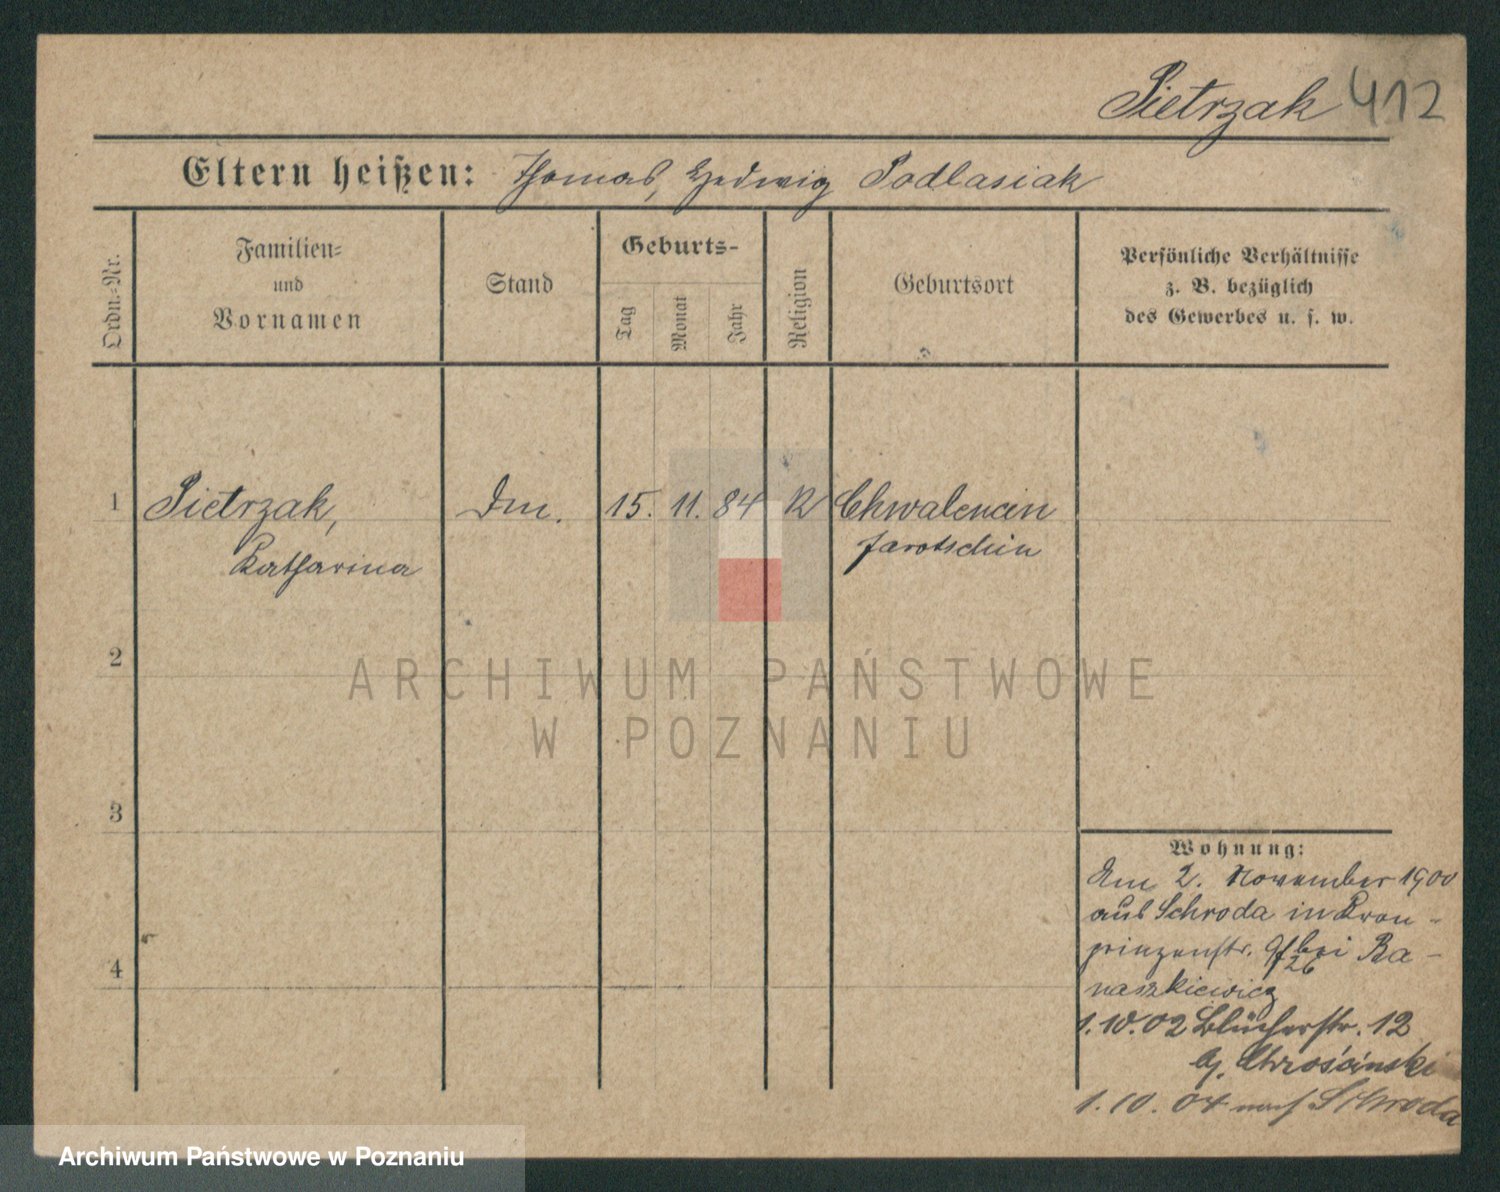 Pietrzak 412
Eltern heißen: Thomas, Hedwig Podlasiak
Ordn.-Nr.
Familien-
und
Vornamen
Stand
Geburts-
Tag
Monat
Jahr
Religion
Geburtsort
Persönliche Verhältnisse
z. B. bezüglich
des Gewerbes u. s. w.
1 Pietrzak, 15. 11. 84 K Chwalencin
Katharina Jarotschin
2
3
4
Wohnung:
Am 2. November 1900
aus Schroda in Kron-
prinzenstr. bei Ba-
26
naszkiewicz
1.10.02 Blücherstr. 12
Chrościnski
1.10.04 nach Schroda
ARCHIWUM PAŃSTWOWE
W POZNANIU
Archiwum Państwowe w Poznaniu